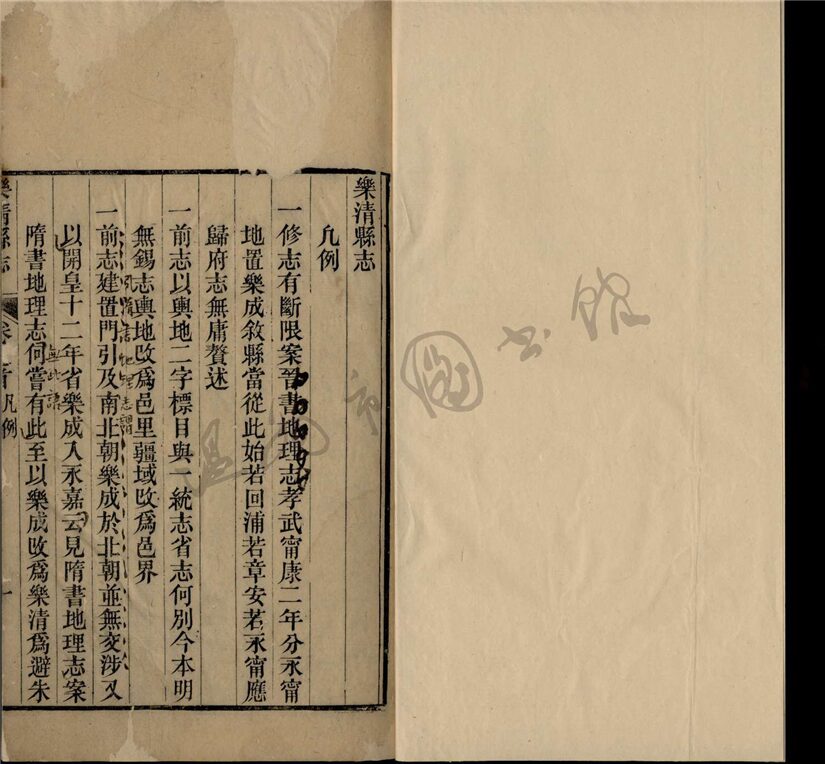 樂清縣志
凡例
一修志有斷限案晉書地理志孝武甯康二年分永甯
地置樂成敘縣當從此始若回浦若章安若永甯應
歸府志無庸贅述
一前志以輿地二字標目與一統志省志何別今本明
無錫志輿地改爲邑里疆域改爲邑界
一前志建置門引及南北朝樂成於北朝並無交涉又
以開皇十二年省樂成入永嘉云見隋書地理志案
隋書地理志何嘗有此至以樂成改爲樂清爲避朱
隋書地理志謂
無此語
樂清縣志
卷首
凡例
一
市圖書館